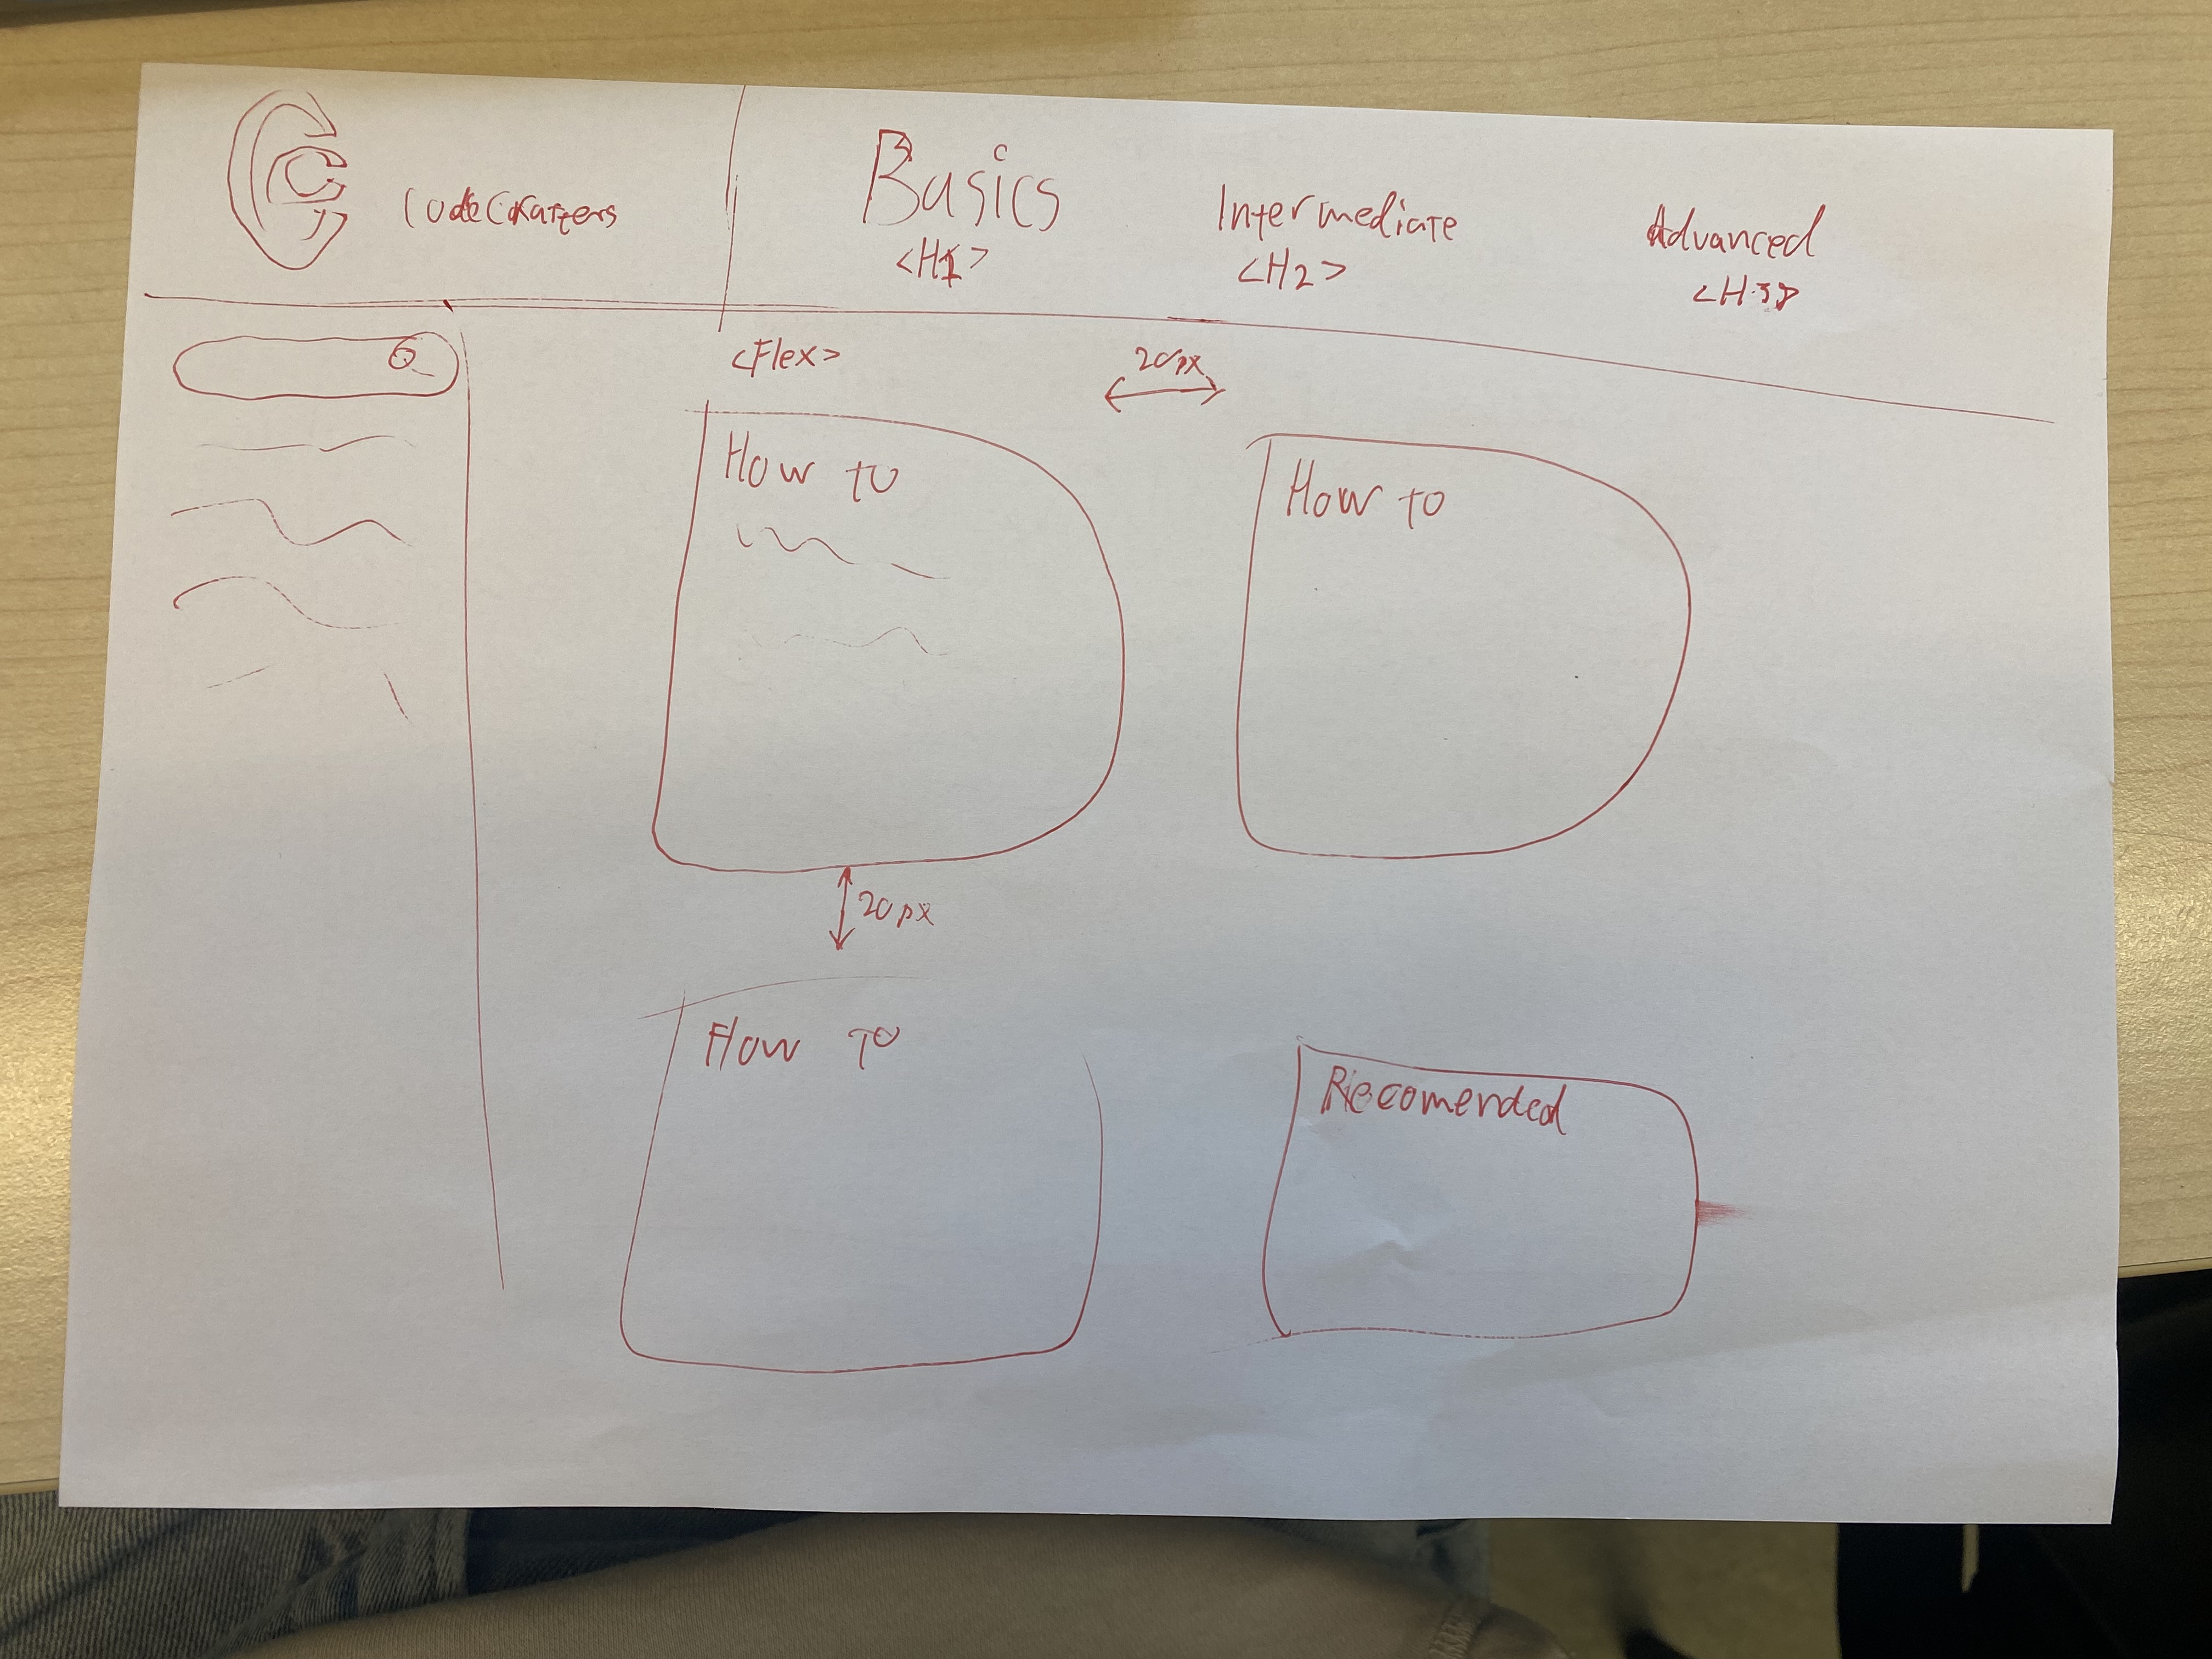 CodeCrafters
Basics
<H1>
Intermediate
<H2>
Advanced
<H3>
<Flex>
20px
How to
How to
20px
How to
Recomended